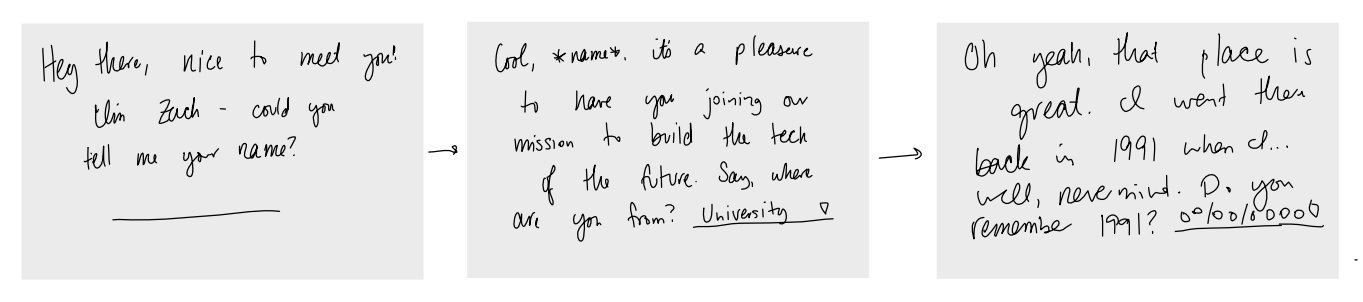 Hey there, nice to meet you!
I'm Zach - could you
tell me your name?
Cool, *name*. it's a pleasure
to have you joining our
mission to build the tech
of the future. Say, where
are you from? University
Oh yeah, that place is
great. I went there
back in 1991 when I...
well, nevermind. Do you
remember 1991? 00/00/00000